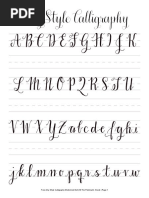 Style Calligraphy
A B C D E F G H I J K
L M N O P Q R S T
U V W X Y Z a b c d e f g h i
j k l m n o p q r s t u v w